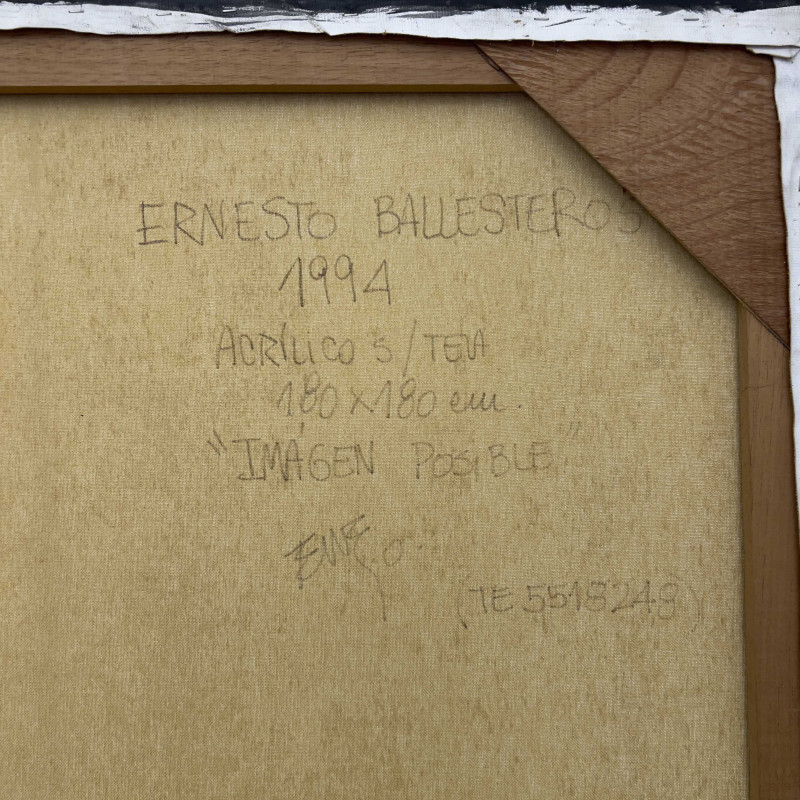 ERNESTO BALLESTEROS
1994
ACRÍLICO S/TELA
180 x 180 cm.
"IMÁGEN POSIBLE"
(TE 5518248)